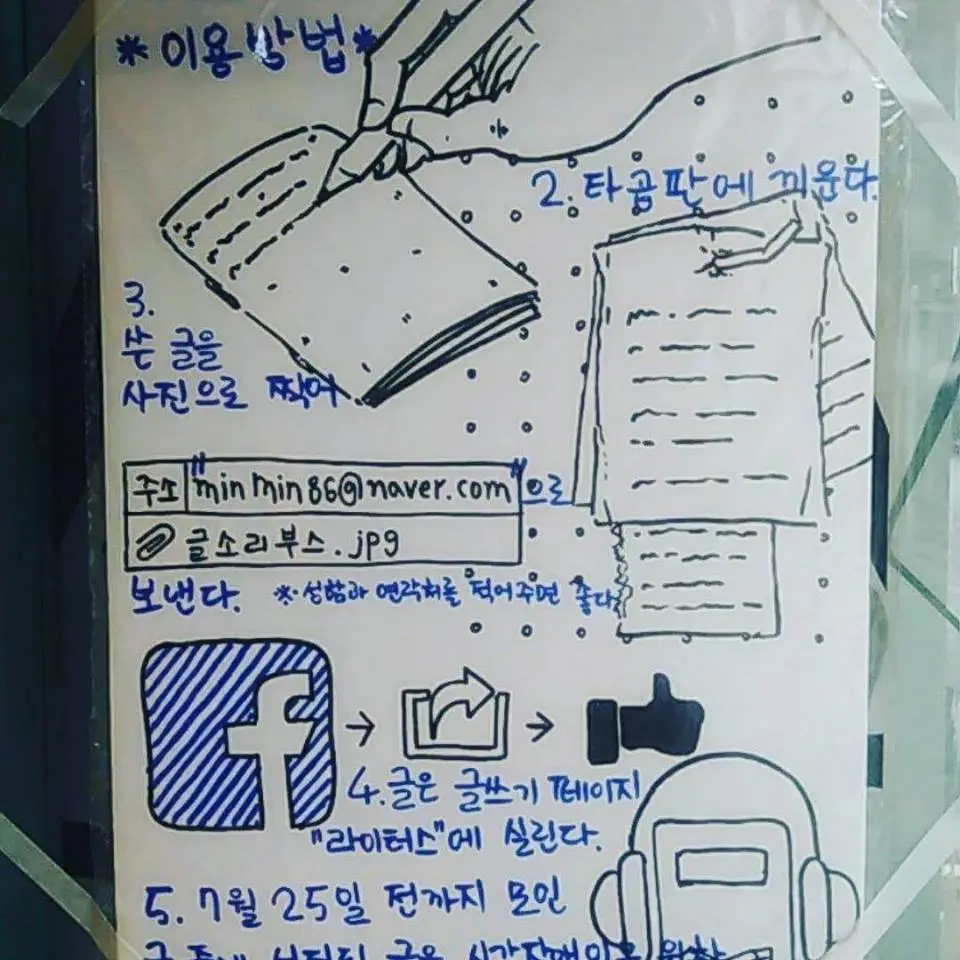 *이용방법*
2. 타공판에 끼운다.
3.
쓴 글을
사진으로 찍어
주소 "minmin86@naver.com"으로
글소리부스.jpg
보낸다. ※성함과 연락처를 적어주면 좋다.
f
4. 글은 글쓰기 페이지
"라이터스"에 실린다.
5. 7월 25일 전까지 모인